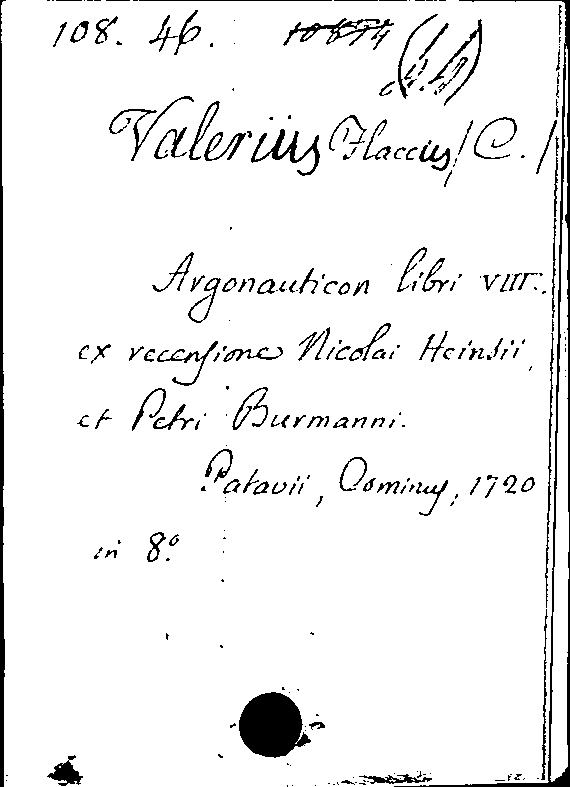 108. 46. 10874
Valerius Flaccus / C. /
Argonauticon libri VIII.
ex recensione Nicolai Heinsii,
et Petri Burmanni.
Patavii, Cominus, 1720
in 8.º